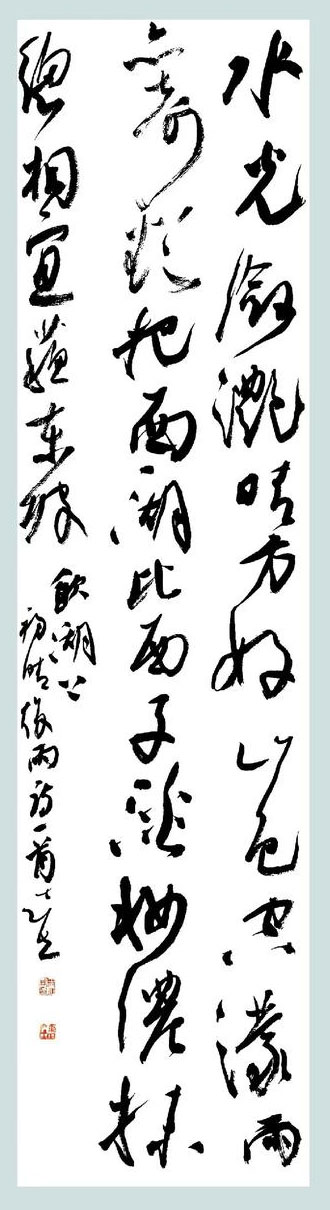 水光瀲灧晴方好山色空濛雨
亦奇欲把西湖比西子淡妝濃抹
總相宜蘇東坡
飲湖上
初晴後雨詩一首